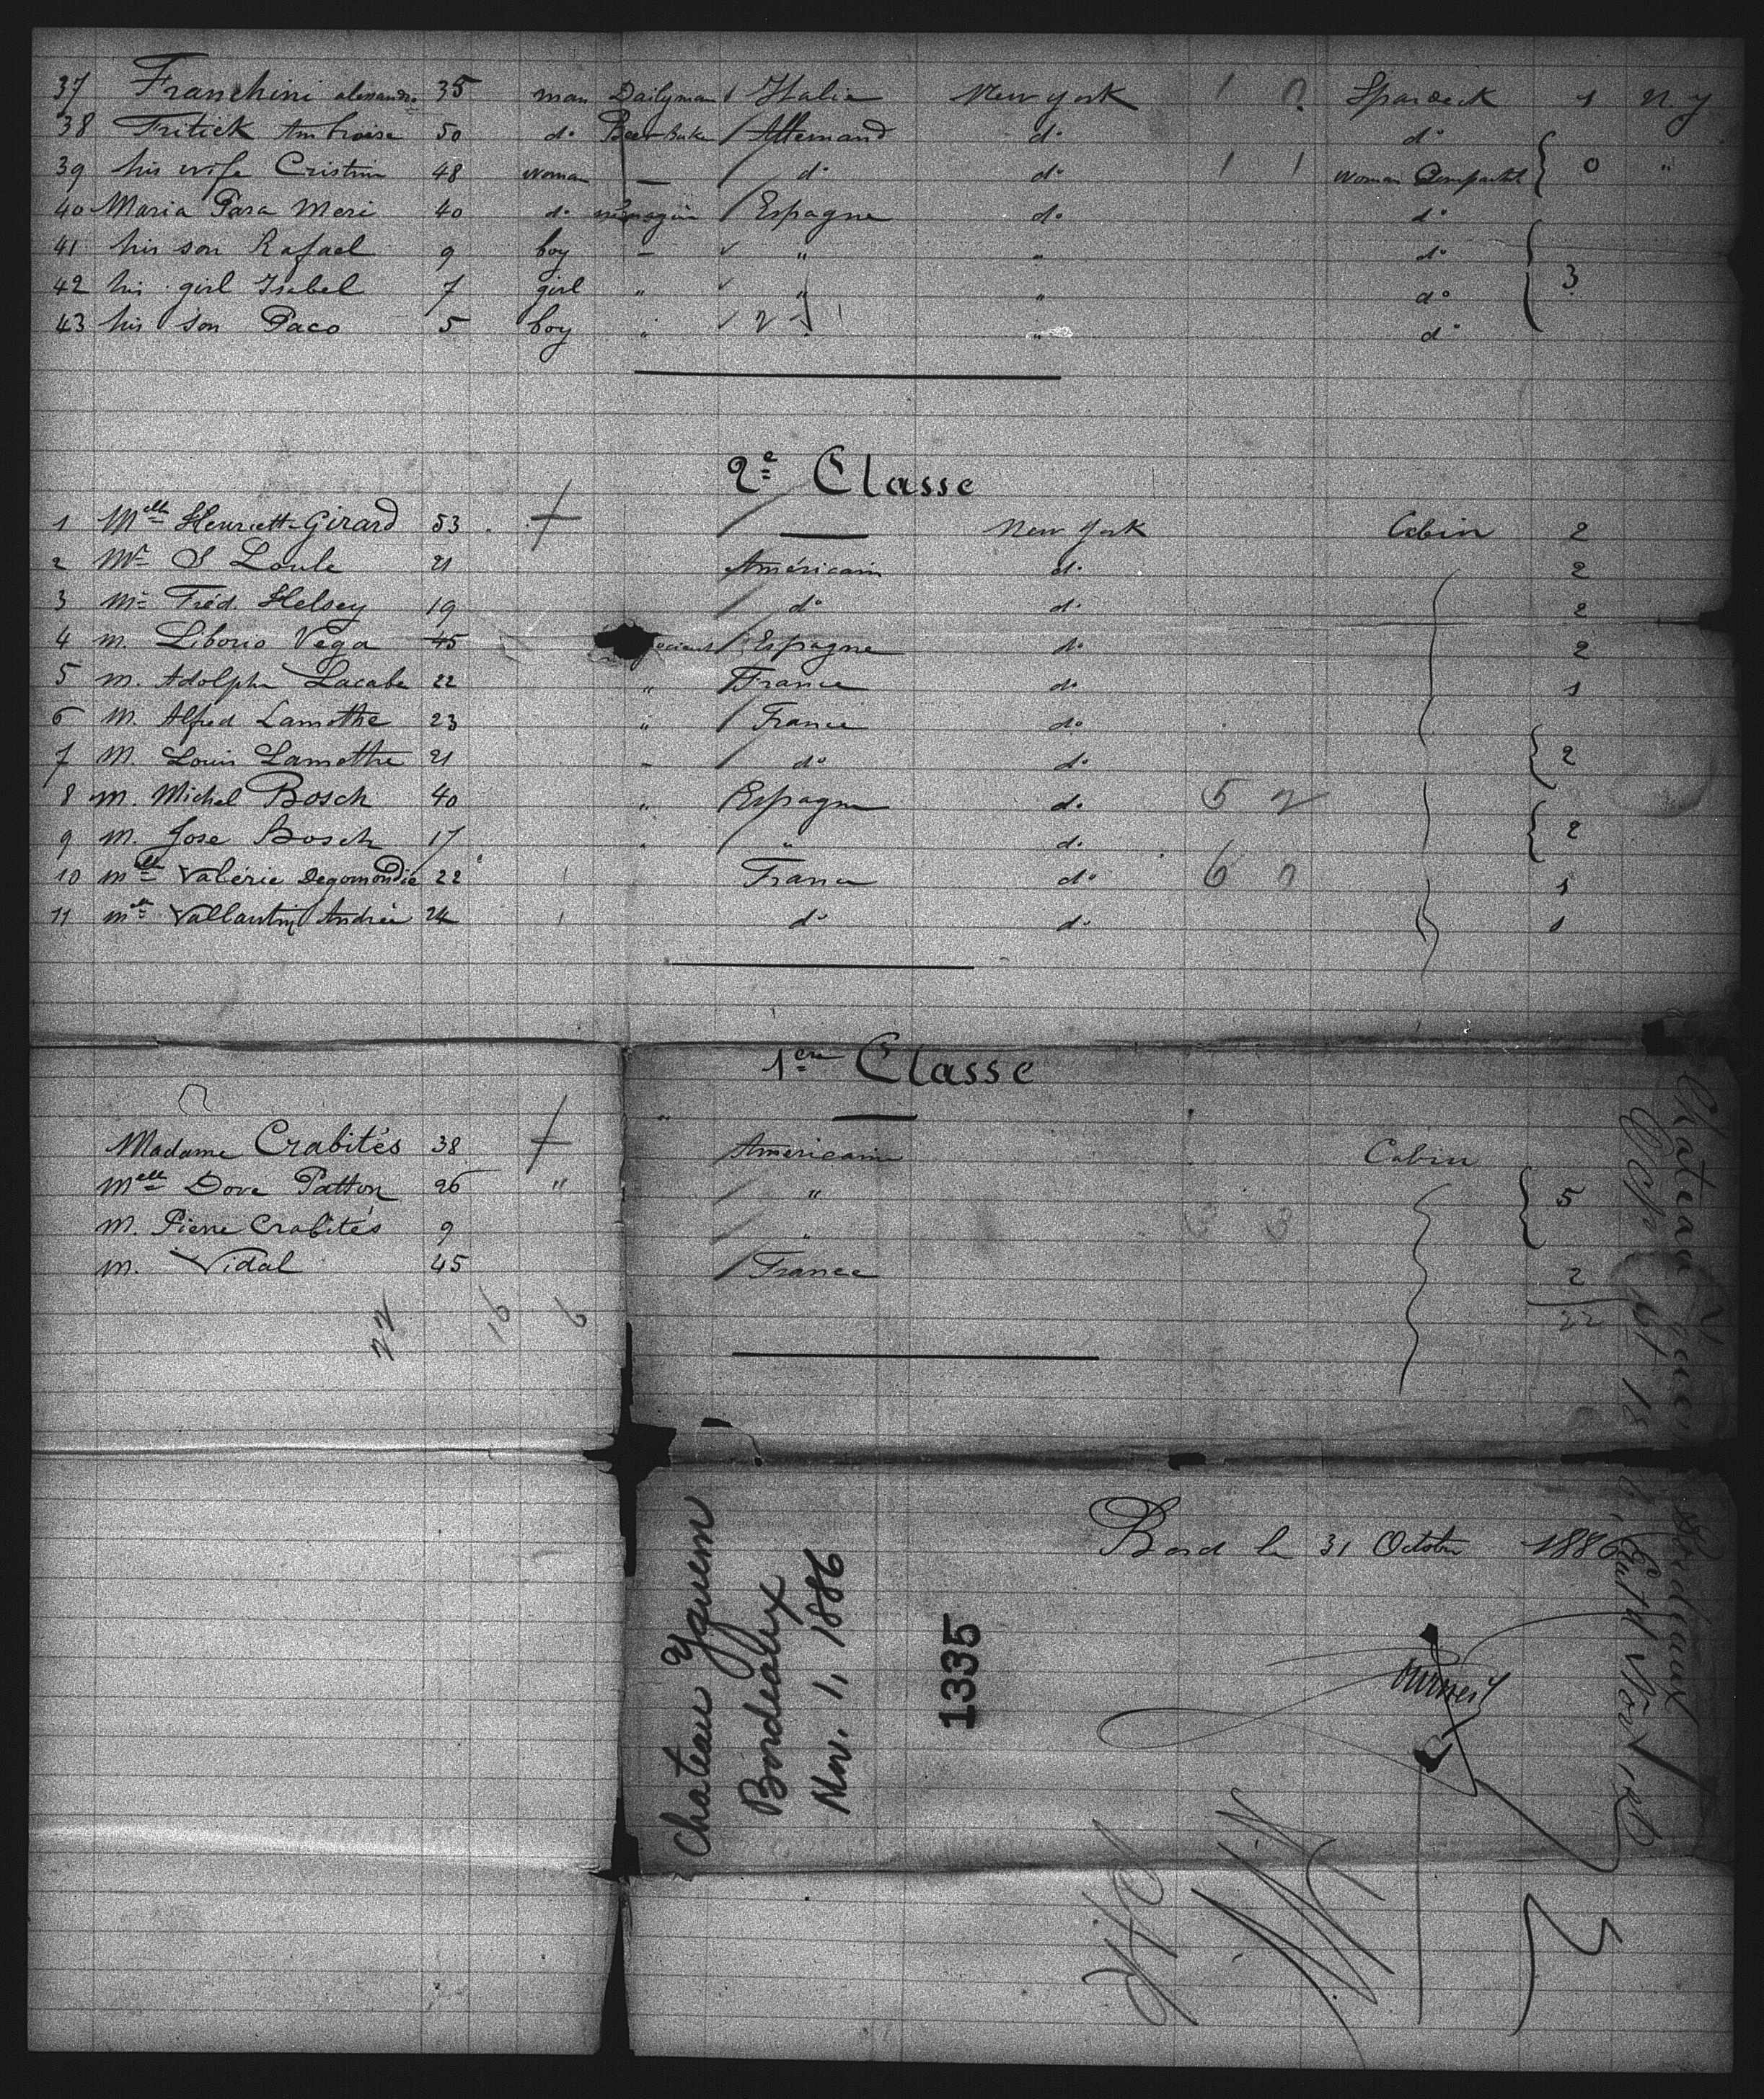 37 Franchini alexandre 35 man Dailyman Italie New york 1 0 Spardeck 1 n. y
38 Fritick Ambroise 50 do Allemand do do
39 his wife Cristin 48 woman — do do 1 1 woman Compartit 0 "
40 Maria Para Meri 40 do Espagne do do
41 his son Rafael 9 boy — " " do 3
42 his girl Isabel 7 girl " " " do
43 his son Paco 5 boy " 2 " do
2e Classe
1 Melle Henriett Girard 53 New York Cabin 2
2 Mr S Loule 21 Américain do 2
3 Mr Fréd. Helsey 19 do do 2
4 m. Liborio Vega 45 Espagne do 2
5 m. Adolphe Lacabe 22 " France do 1
6 M. Alfred Lamothe 23 " France do
7 M. Louis Lamothe 21 - do do 2
8 m. Michel Bosch 40 " Espagne do 5 2
9 m. Jose Bosch 17 " " do 2
10 melle Valérie Degomondie 22 France do 6 0 1
11 melle Vallantin Andrée 24 do do 1
1ere Classe
Madame Crabités 38 Américain Cabin
Melle Dove Patton 26 " " 5
M. Pierre Crabités 9 "
m. Vidal 45 France 2
22 16 6 22
Bord le 31 Octobre 1886
Chateau Yquem
Bordeaux
Nov. 1, 1886
1335
Chateau Yquem Bordeaux